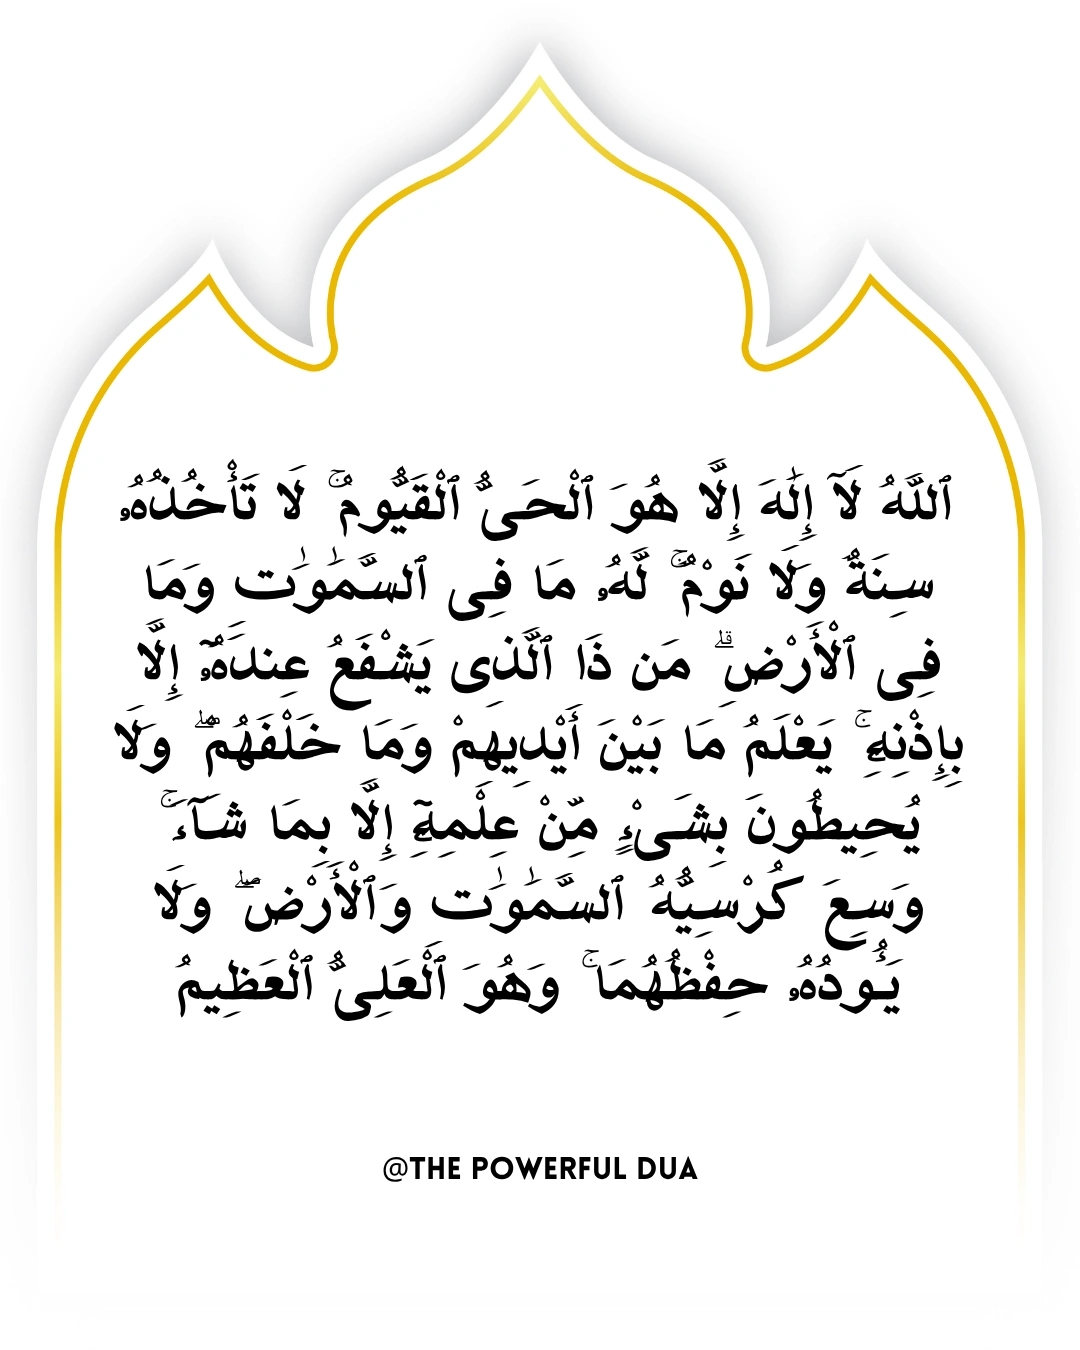 ٱللَّهُ لَآ إِلَٰهَ إِلَّا هُوَ ٱلْحَىُّ ٱلْقَيُّومُ ۚ لَا تَأْخُذُهُۥ
سِنَةٌ وَلَا نَوْمٌ ۚ لَّهُۥ مَا فِى ٱلسَّمَٰوَٰتِ وَمَا
فِى ٱلْأَرْضِ ۗ مَن ذَا ٱلَّذِى يَشْفَعُ عِندَهُۥٓ إِلَّا
بِإِذْنِهِۦ ۚ يَعْلَمُ مَا بَيْنَ أَيْدِيهِمْ وَمَا خَلْفَهُمْ ۖ وَلَا
يُحِيطُونَ بِشَىْءٍ مِّنْ عِلْمِهِۦٓ إِلَّا بِمَا شَآءَ ۚ
وَسِعَ كُرْسِيُّهُ ٱلسَّمَٰوَٰتِ وَٱلْأَرْضَ ۖ وَلَا
يَـُٔودُهُۥ حِفْظُهُمَا ۚ وَهُوَ ٱلْعَلِىُّ ٱلْعَظِيمُ
@THE POWERFUL DUA